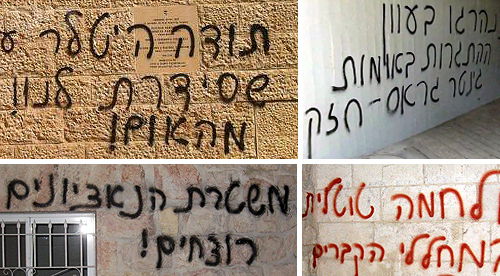 תודה היטלר
שסידרת לנו!
מהאום!
נהרגו בעוון
התגרות באומות
גינטר גראס - חזק
משטרת הנאציונים
רוצחים!
מלחמה טוטלית
במחללי הקברים